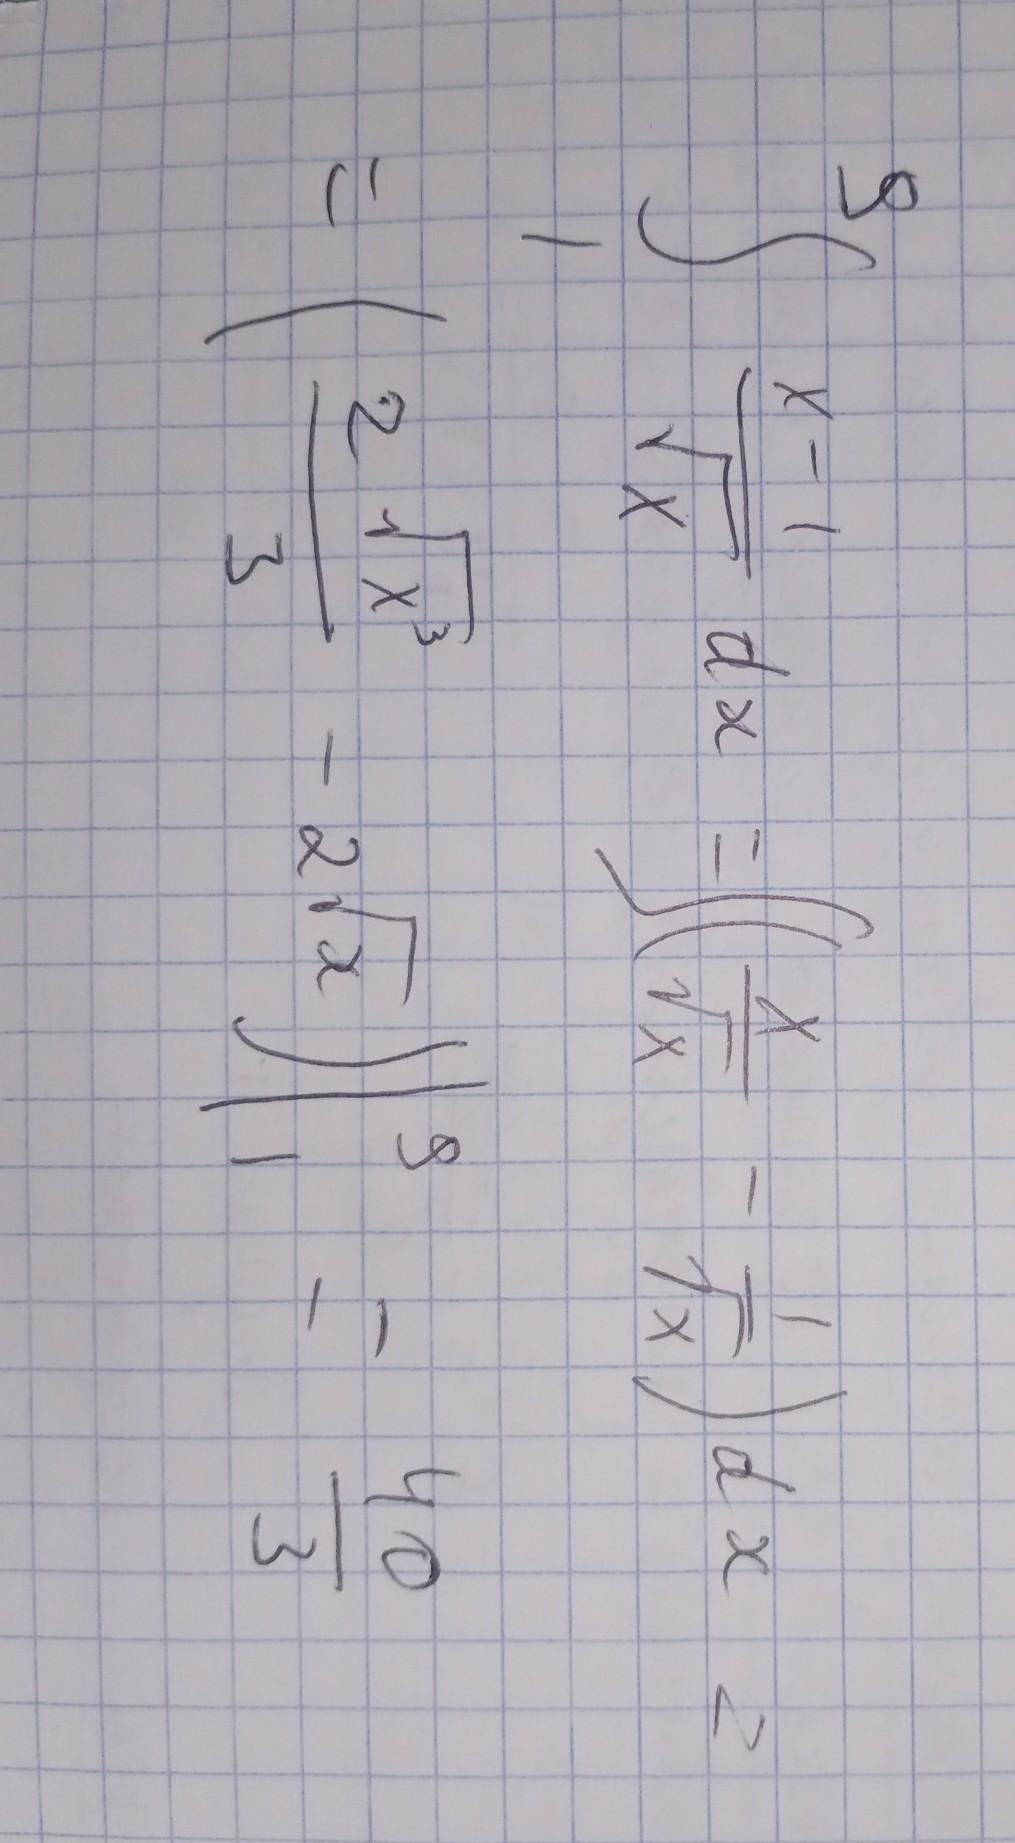 9
∫ (x-1)/√x dx = ∫(x/√x - 1/√x) dx =
1
= (2√x³/3 - 2√x)|₁⁹ = 40/3